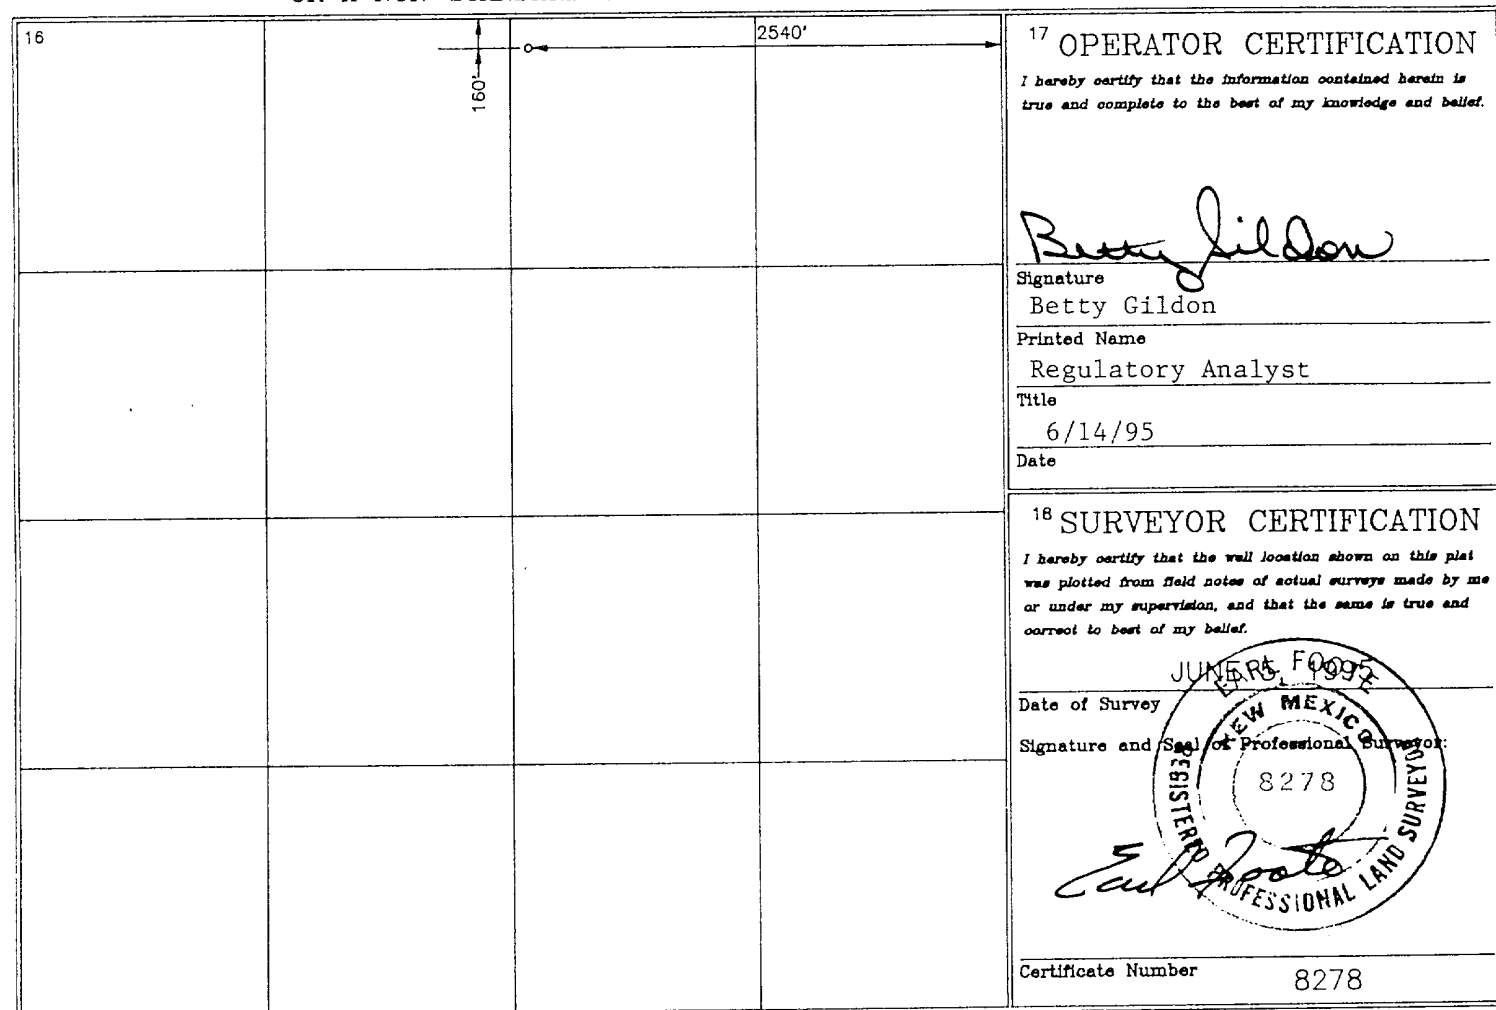 16
2540'
160'
17 OPERATOR CERTIFICATION
I hereby certify that the information contained herein is
true and complete to the best of my knowledge and belief.
Betty Gildon
Signature
Betty Gildon
Printed Name
Regulatory Analyst
Title
6/14/95
Date
18 SURVEYOR CERTIFICATION
I hereby certify that the well location shown on this plat
was plotted from field notes of actual surveys made by me
or under my supervision, and that the same is true and
correct to best of my belief.
JUNE 5, 1995
Date of Survey
Signature and Seal of Professional Surveyor:
EARL FOOTE
NEW MEXICO
8278
REGISTERED PROFESSIONAL LAND SURVEYOR
Earl Foote
Certificate Number 8278